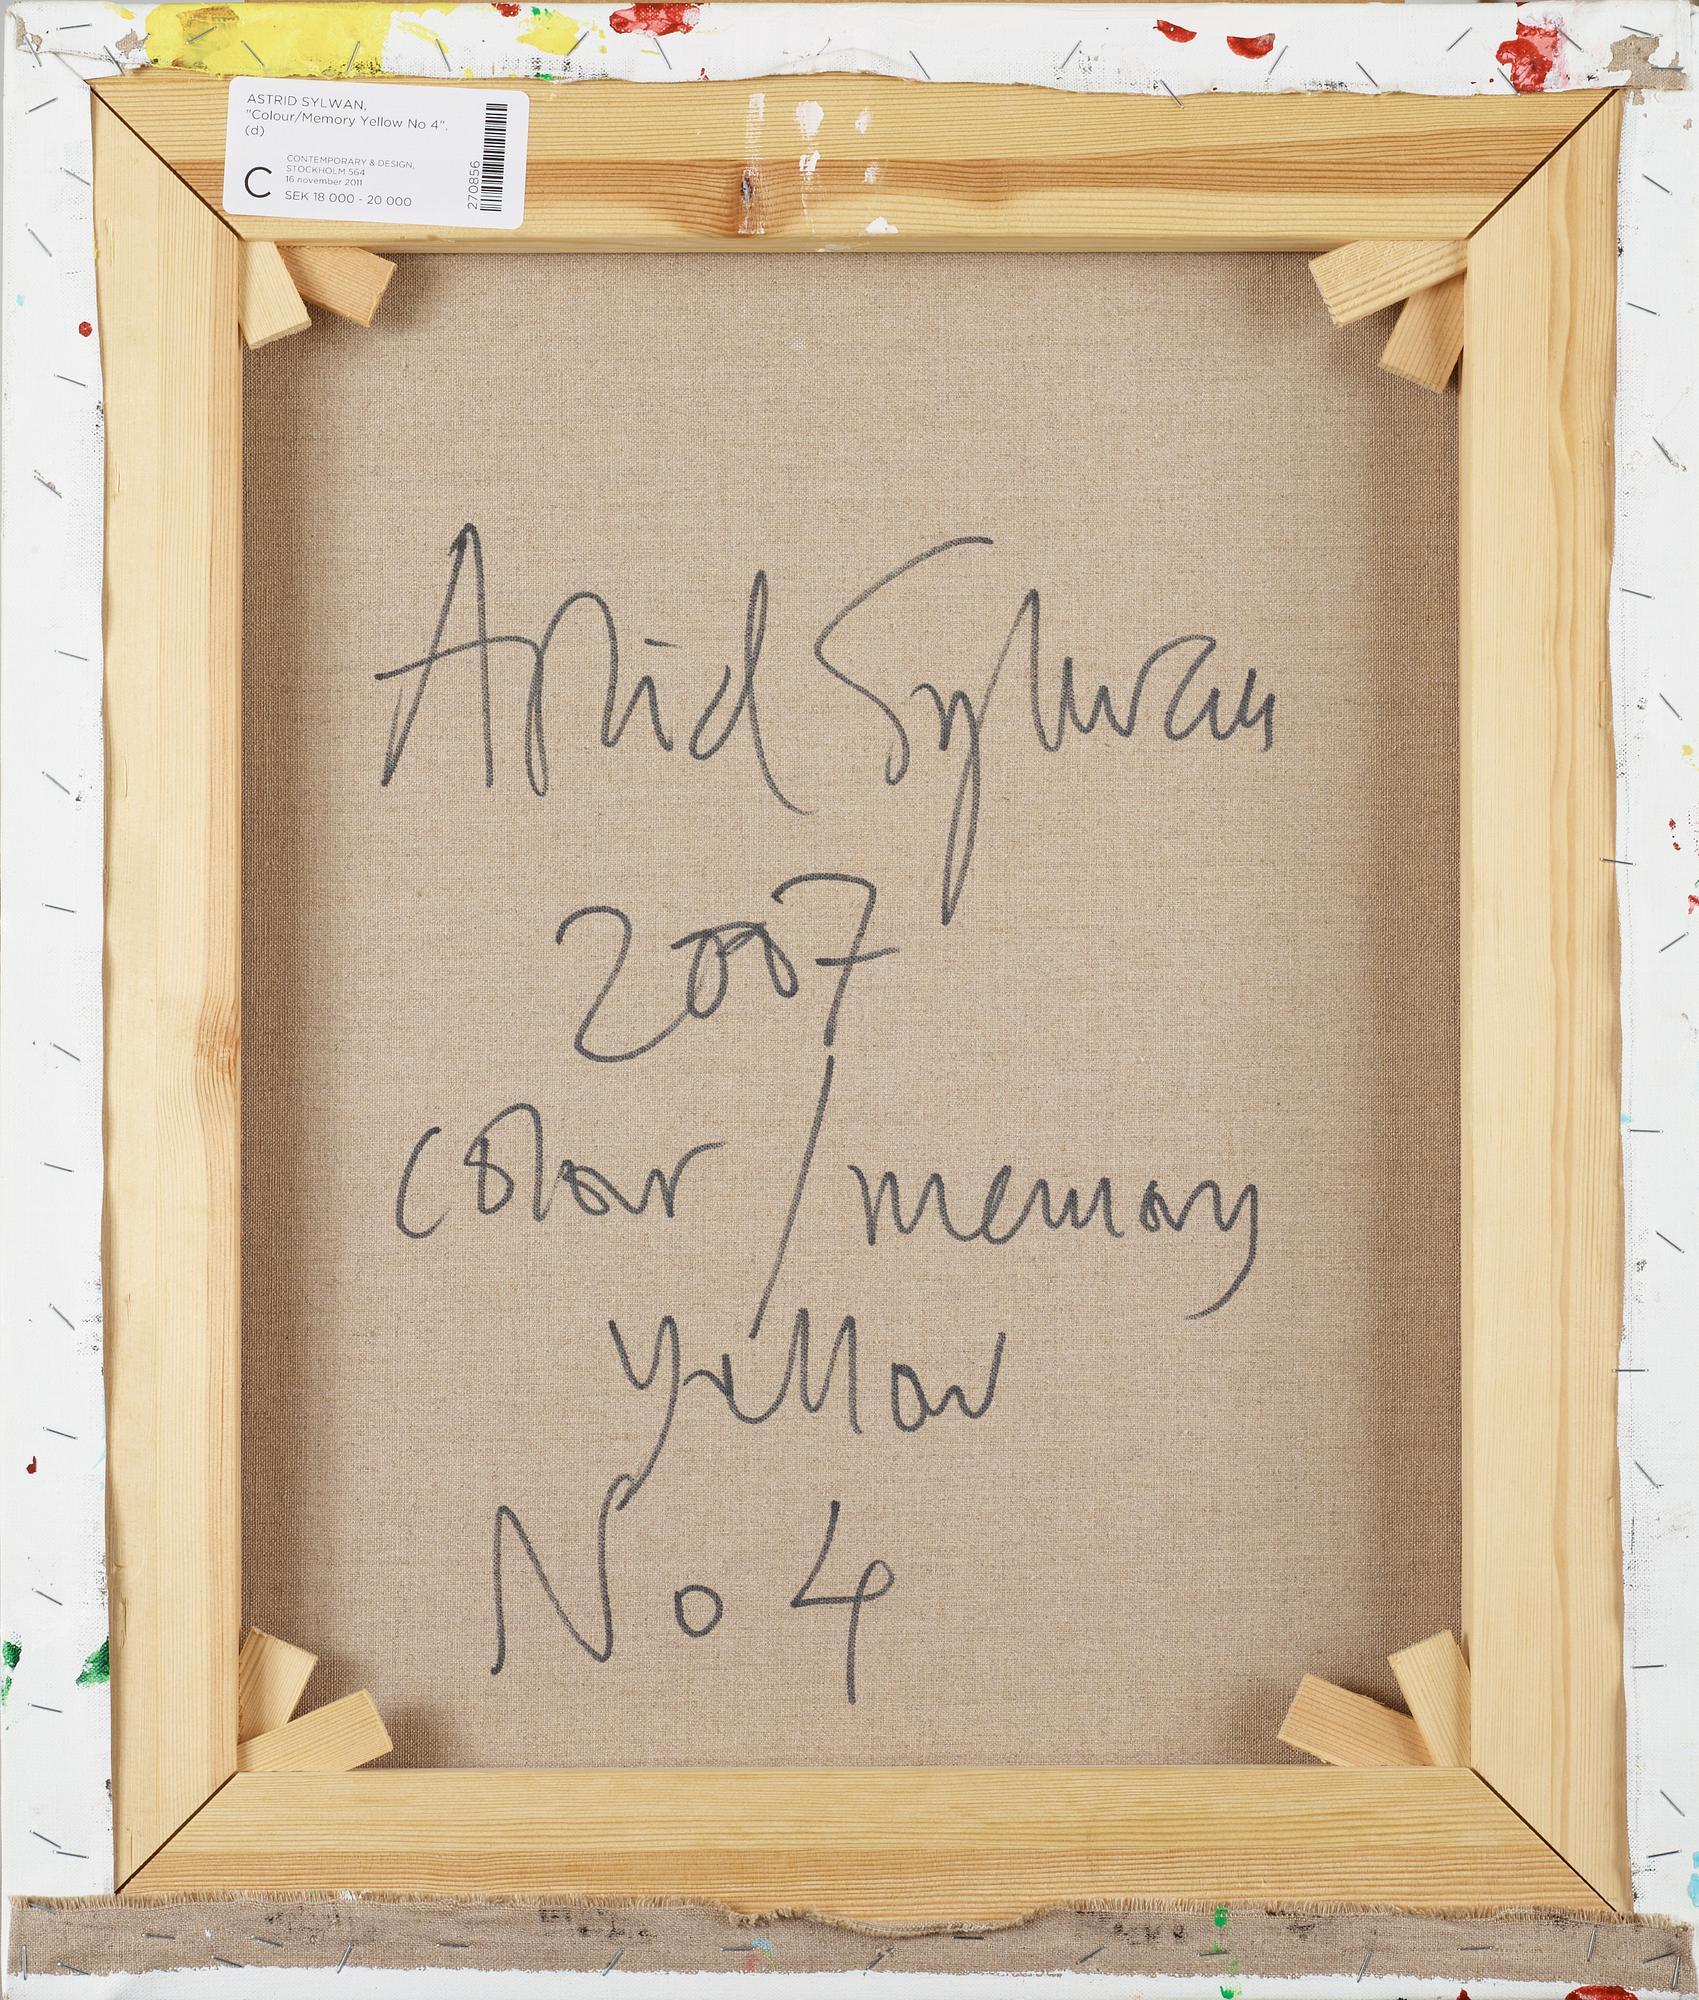 ASTRID SYLWAN,
"Colour/Memory Yellow No 4".
(d)
C
CONTEMPORARY & DESIGN,
STOCKHOLM 564
16 november 2011
SEK 18 000 - 20 000
270856
Astrid Sylwan
2007
colour / memory
yellow
No 4